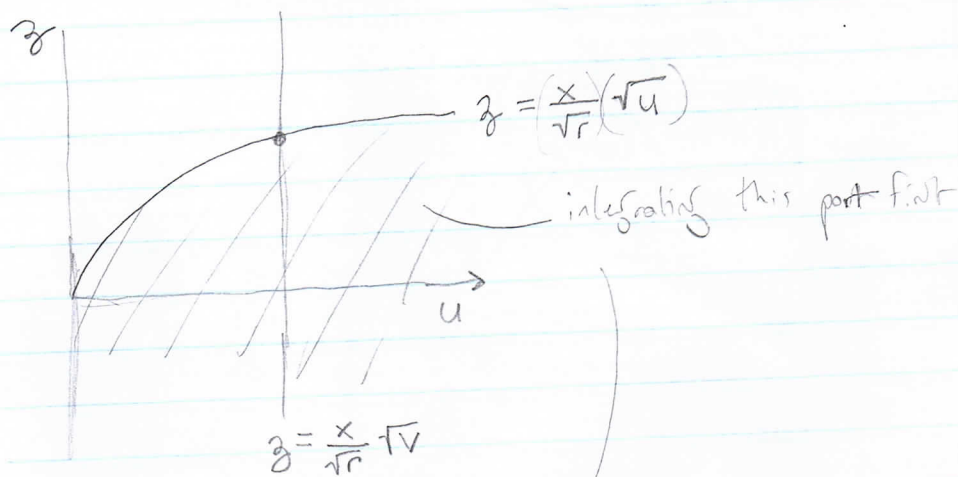 z
z = (x/√r)(√u)
integrating this part first
u
z = x/√r √v